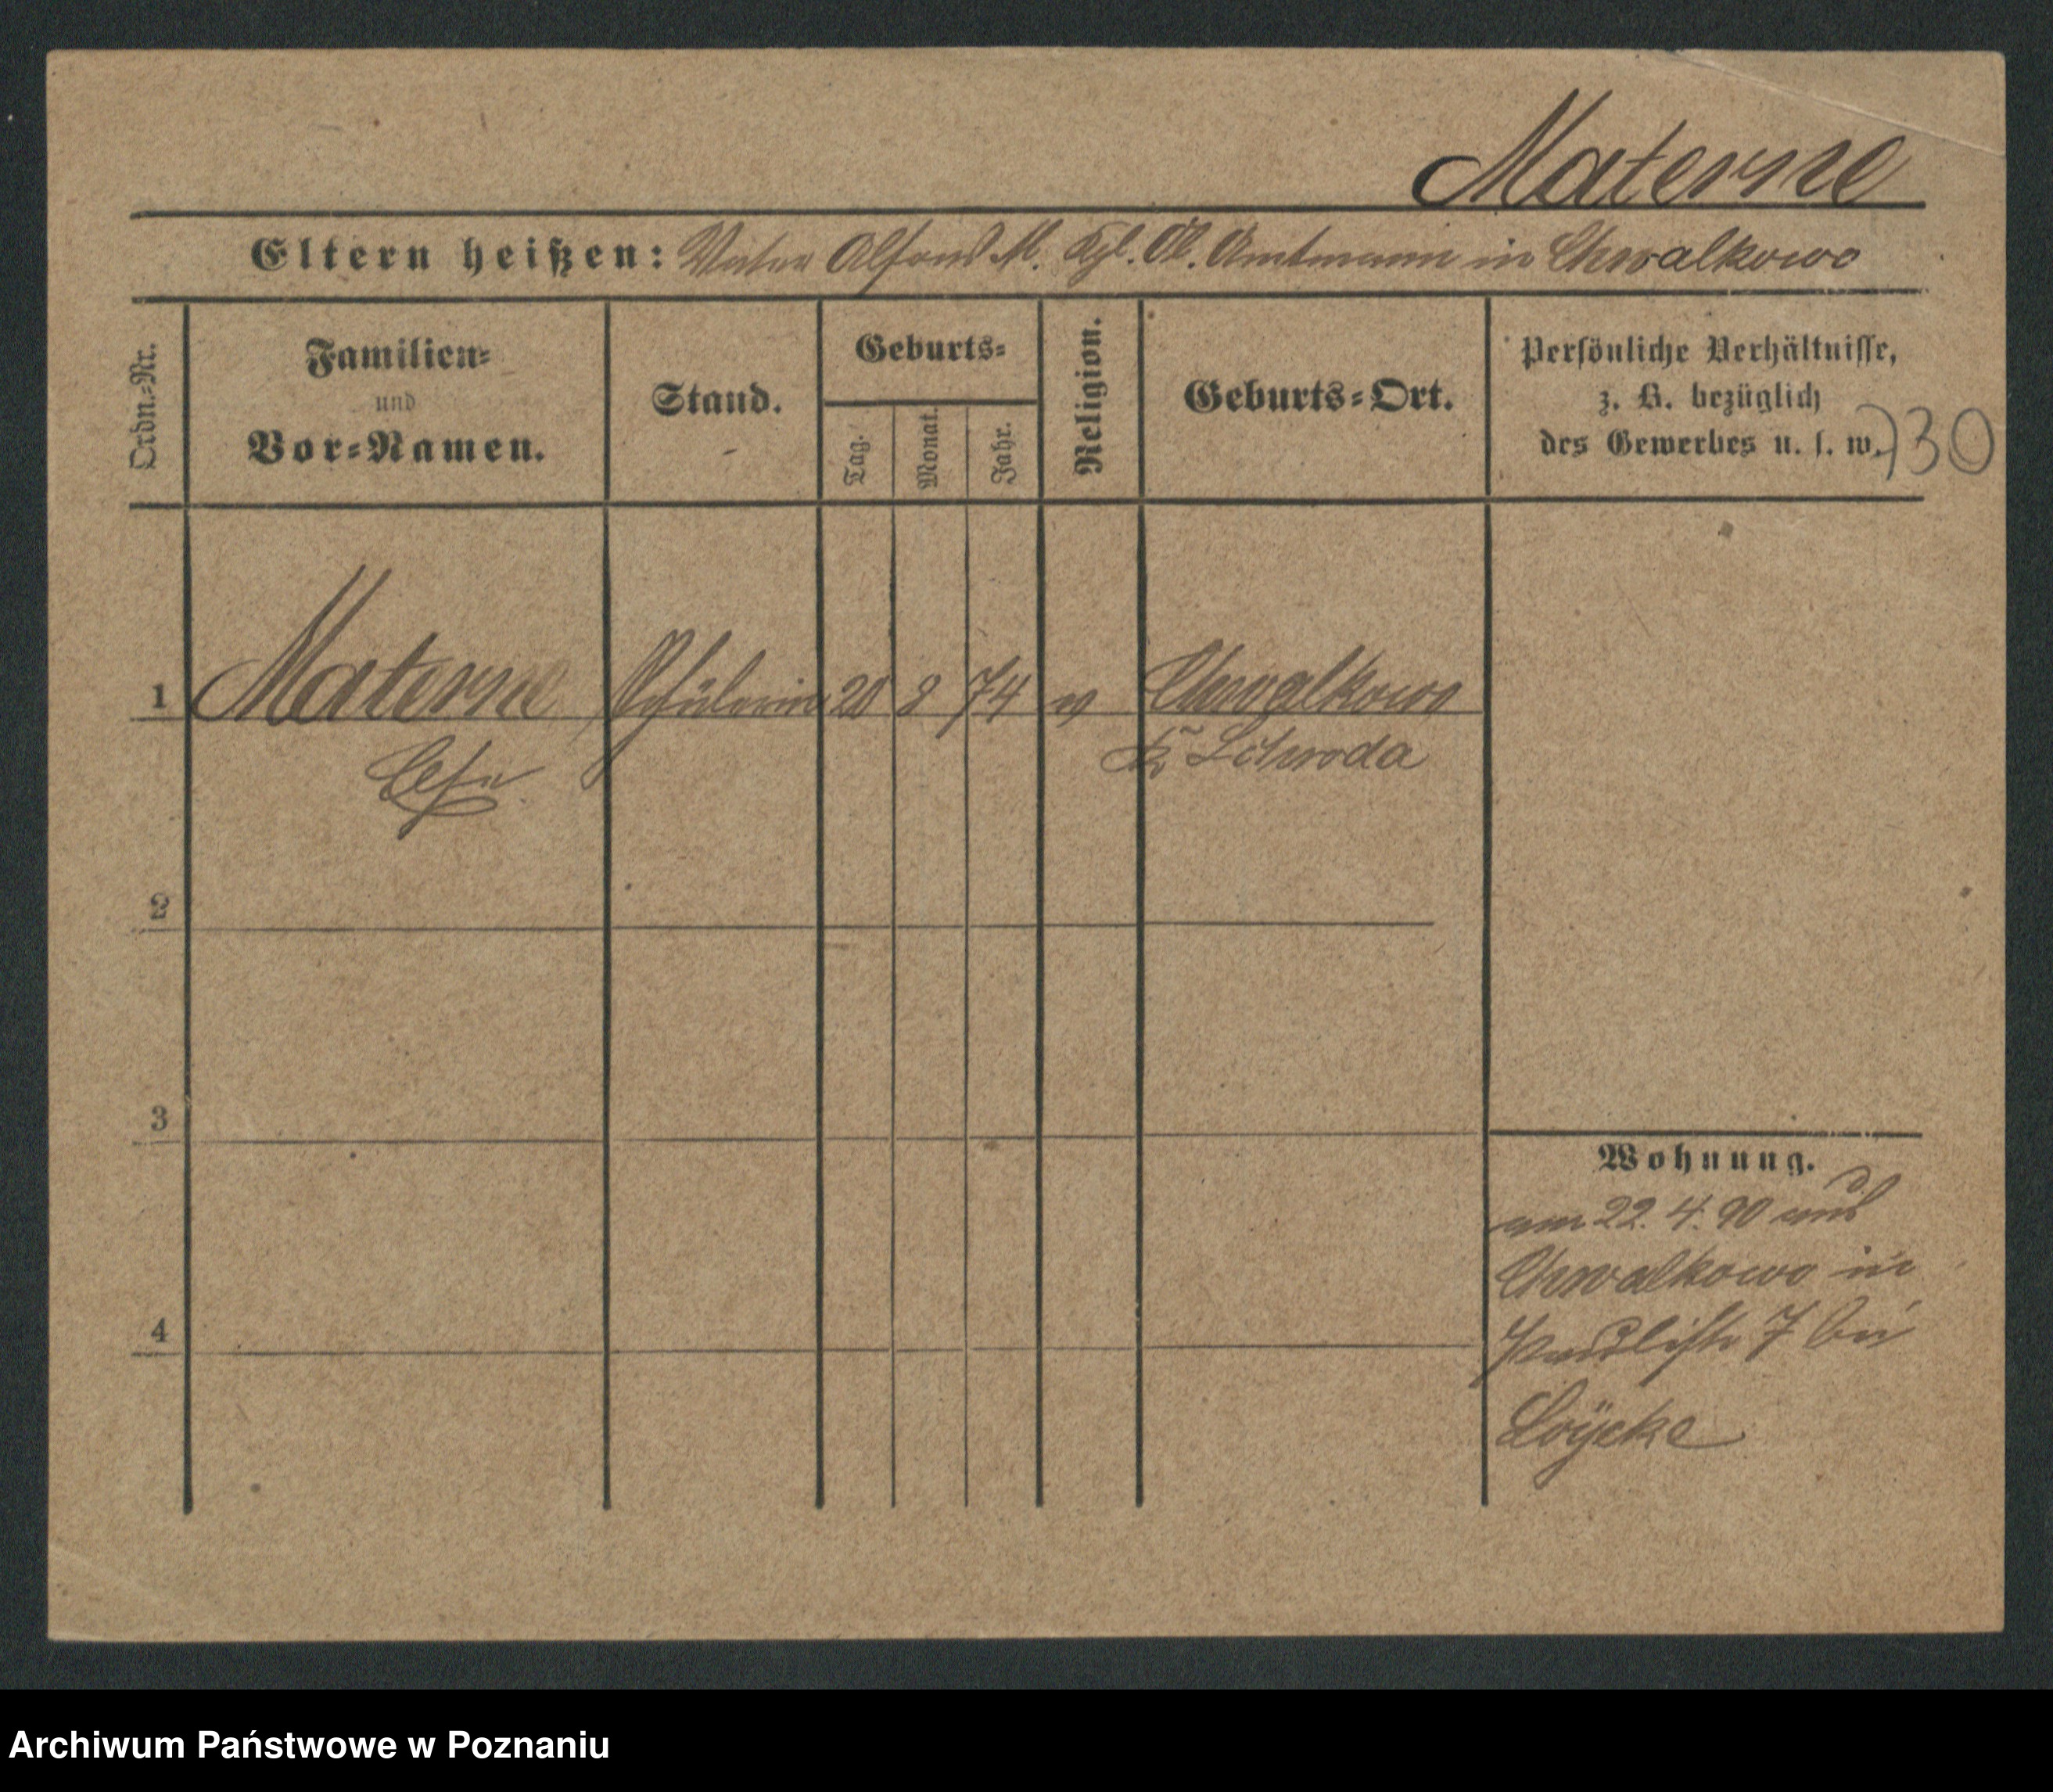 Materne
Eltern heißen: Vater Alfons M. Kgl. Ob. Amtmann in Chwalkowo
Ordn.-Nr.
Familien-
und
Vor-Namen.
Stand.
Geburts-
Tag.
Monat.
Jahr.
Religion.
Geburts-Ort.
Persönliche Verhältnisse,
z. B. bezüglich
des Gewerbes u. s. w.
730
1 Materne Schülerin 20 8 74 Chwalkowo
Kr Schroda
2
3
4
Wohnung.
am 22. 4. 90 aus
Chwalkowo in
7 bei
Loycke
Archiwum Państwowe w Poznaniu